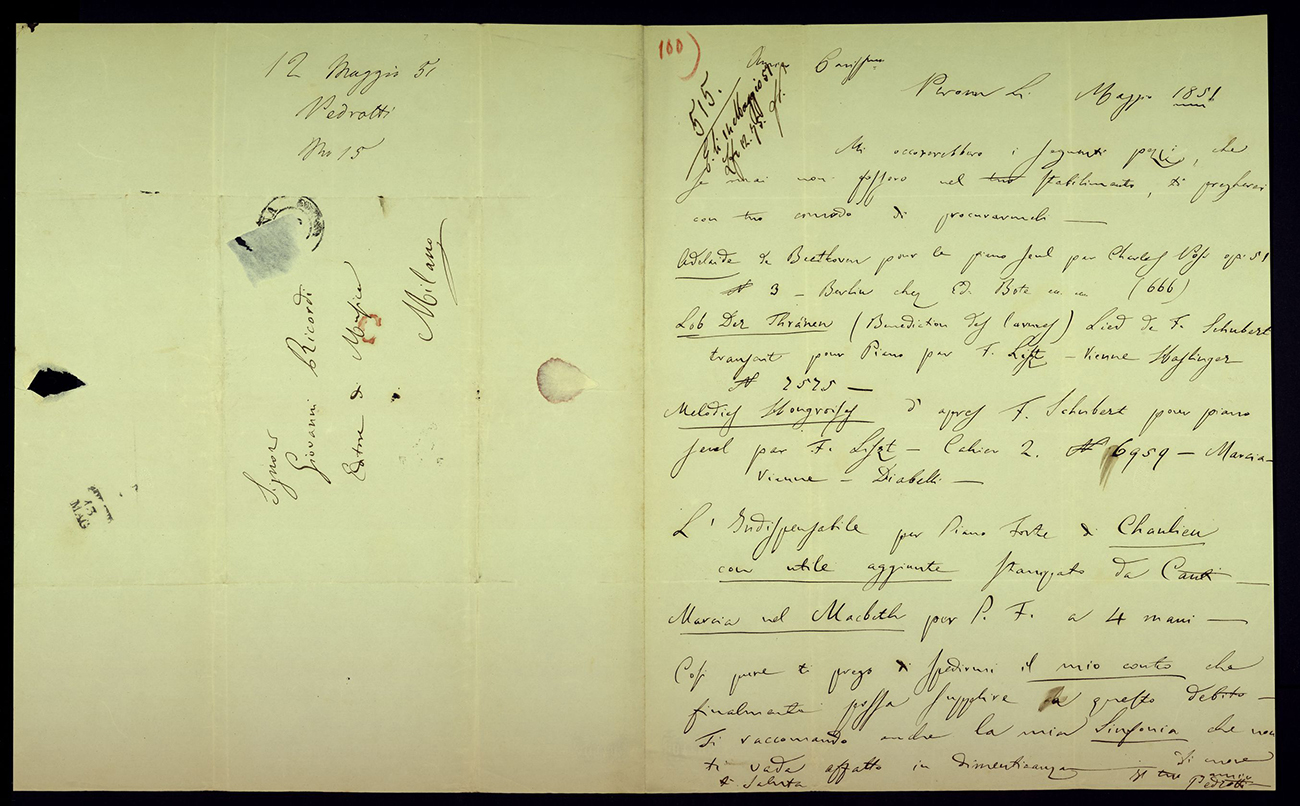 12 Maggio 51
Pedrotti
No 15
Signor
Giovanni Ricordi
Editore di Musica
Milano
13
MAG
100)
515.
Amico Cariss.mo
Verona li Maggio 1851
Mi occorerebbero i seguenti pezzi, che
se mai non fossero nel tuo stabilimento, ti pregherei
con tuo comodo di procurarmeli —
Adelaide de Beethoven pour le piano seul par Charles Voss op: 51
N 3 — Berlin chez Ed. Bote (666)
Lob Der Thränen (Benediction des Larmes) Lied de F. Schubert
transcrit pour Piano par F. Liszt — Vienne Haslinger
N 7575 —
Melodies Hongroises d'apres F. Schubert pour piano
seul par F. Liszt — Cahier 2. N 6959 — Marcia —
Vienne — Diabelli —
L'Indispensabile per Piano Forte di Chaulieu
con utile aggiunte stampato da Canti —
Marcia nel Macbeth per P. F. a 4 mani —
Così pure ti prego di spedirmi il mio conto che
finalmente possa supplire a questo debito —
Ti raccomando anche la mia Sinfonia che non
ti vada affatto in dimenticanza — di cuore
ti saluta il tuo amico
Pedrotti